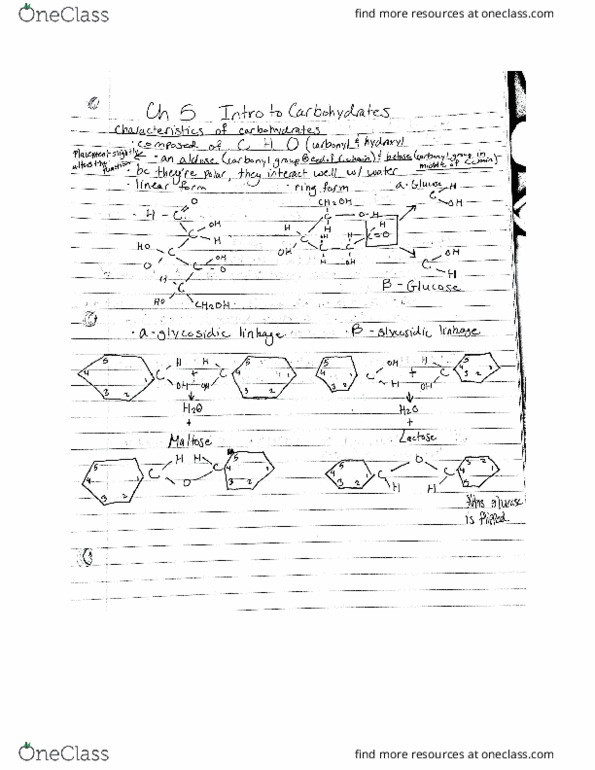 OneClass
find more resources at oneclass.com
Ch 5 Intro to Carbohydrates
Characteristics of carbohydrates
· composed of C H O (carbonyl & hydroxyl
Placement slightly alters the function
- an aldose (carbonyl group @ end of C chain) & ketose (carbonyl group in middle of C chain)
· bc they're polar, they interact well w/ water
· linear form
· ring form
a-Glucose
H
C
OH
O
H - C
OH
C
H
HO
C
O
OH
C
O
H
C
HO
CH2OH
CH2OH
C
O-H
H
H
H
C
C=O
OH
C
C
H
OH
OH
C
H
B-Glucose
· a-glycosidic linkage
· B-glycosidic linkage
5
4
3 2
1
C
H
OH
+
H
OH
C
5
4
3 2
1
5
4
3 2
1
C
OH
H
+
H
OH
C
5
4
3 2
1
H2O
+
Maltose
H2O
+
Lactose
5
4
3 2
1
C
H H
O
C
5
4
3 2
1
5
4
3 2
1
C
H
O
H
C
3 2
4
1
5
glucose
is flipped
OneClass
find more resources at oneclass.com